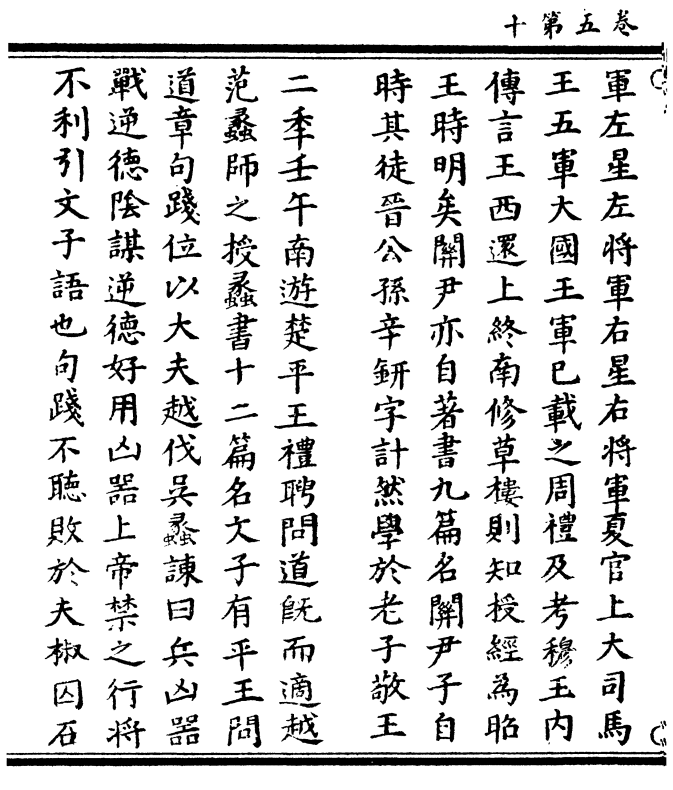 卷五第十
軍左星左将軍右星右将軍夏官上大司馬
王五軍大國王軍已載之周禮及考穆王内
傳言王西還上終南修草樓則知授經為昭
王時明矣關尹亦自著書九篇名關尹子自
時其徒晉公孫辛鈃字計然學於老子敬王
二秊壬午南遊楚平王禮聘問道旣而適越
范蠡師之授蠡書十二篇名文子有平王問
道章句踐位以大夫越伐吳蠡諫曰兵凶器
戰逆德陰謀逆德好用凶器上帝禁之行将
不利引文子語也句踐不聽敗於夫椒囚石